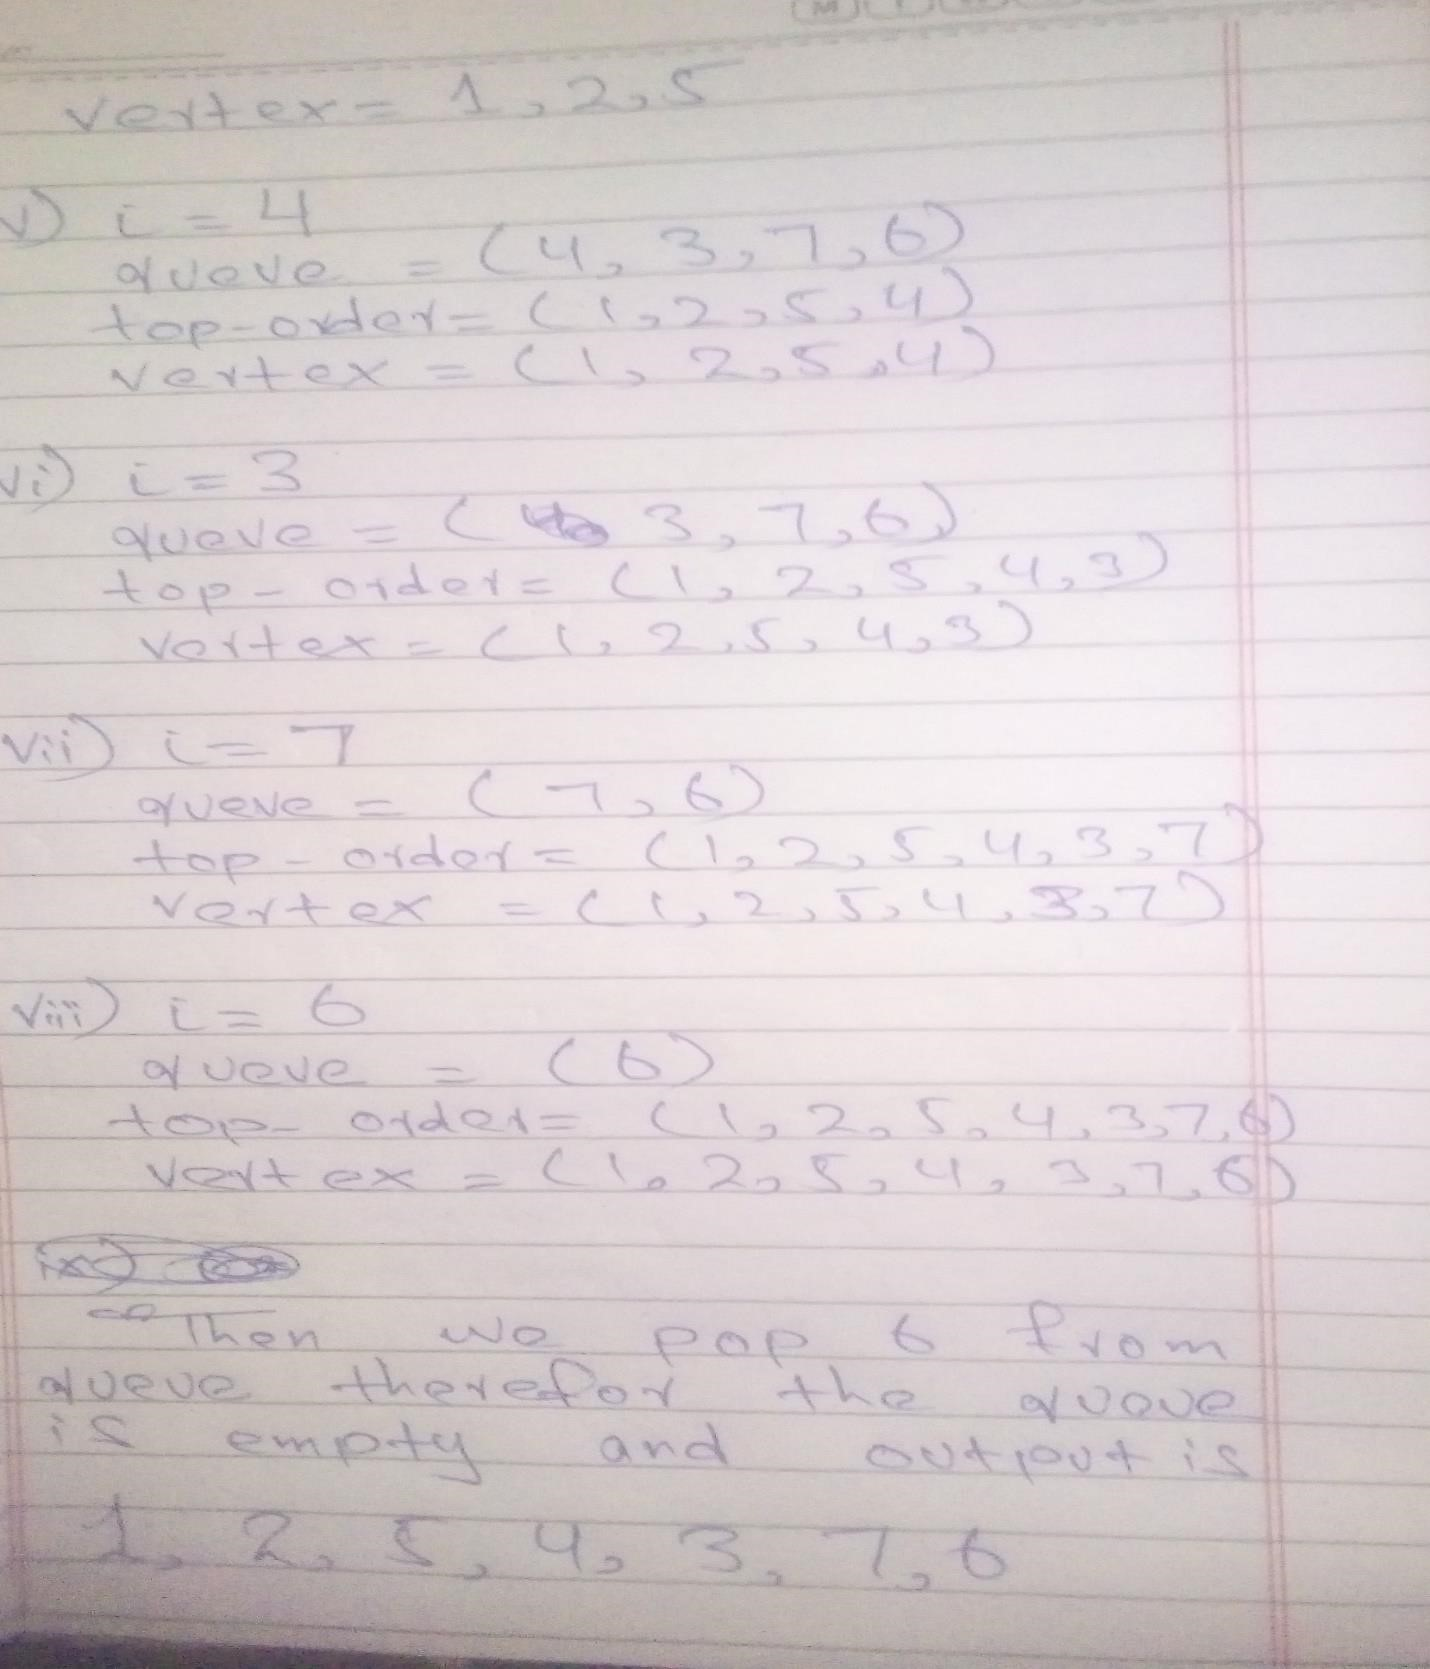 vertex = 1, 2, 5
v) i = 4
queue = (4, 3, 7, 6)
top-order = (1, 2, 5, 4)
vertex = (1, 2, 5, 4)
vi) i = 3
queue = ( 3, 7, 6)
top-order = (1, 2, 5, 4, 3)
vertex = (1, 2, 5, 4, 3)
vii) i = 7
queue = (7, 6)
top-order = (1, 2, 5, 4, 3, 7)
vertex = (1, 2, 5, 4, 3, 7)
viii) i = 6
queue = (6)
top-order = (1, 2, 5, 4, 3, 7, 6)
vertex = (1, 2, 5, 4, 3, 7, 6)
ix)
Then we pop 6 from
queue therefor the queue
is empty and output is
1, 2, 5, 4, 3, 7, 6